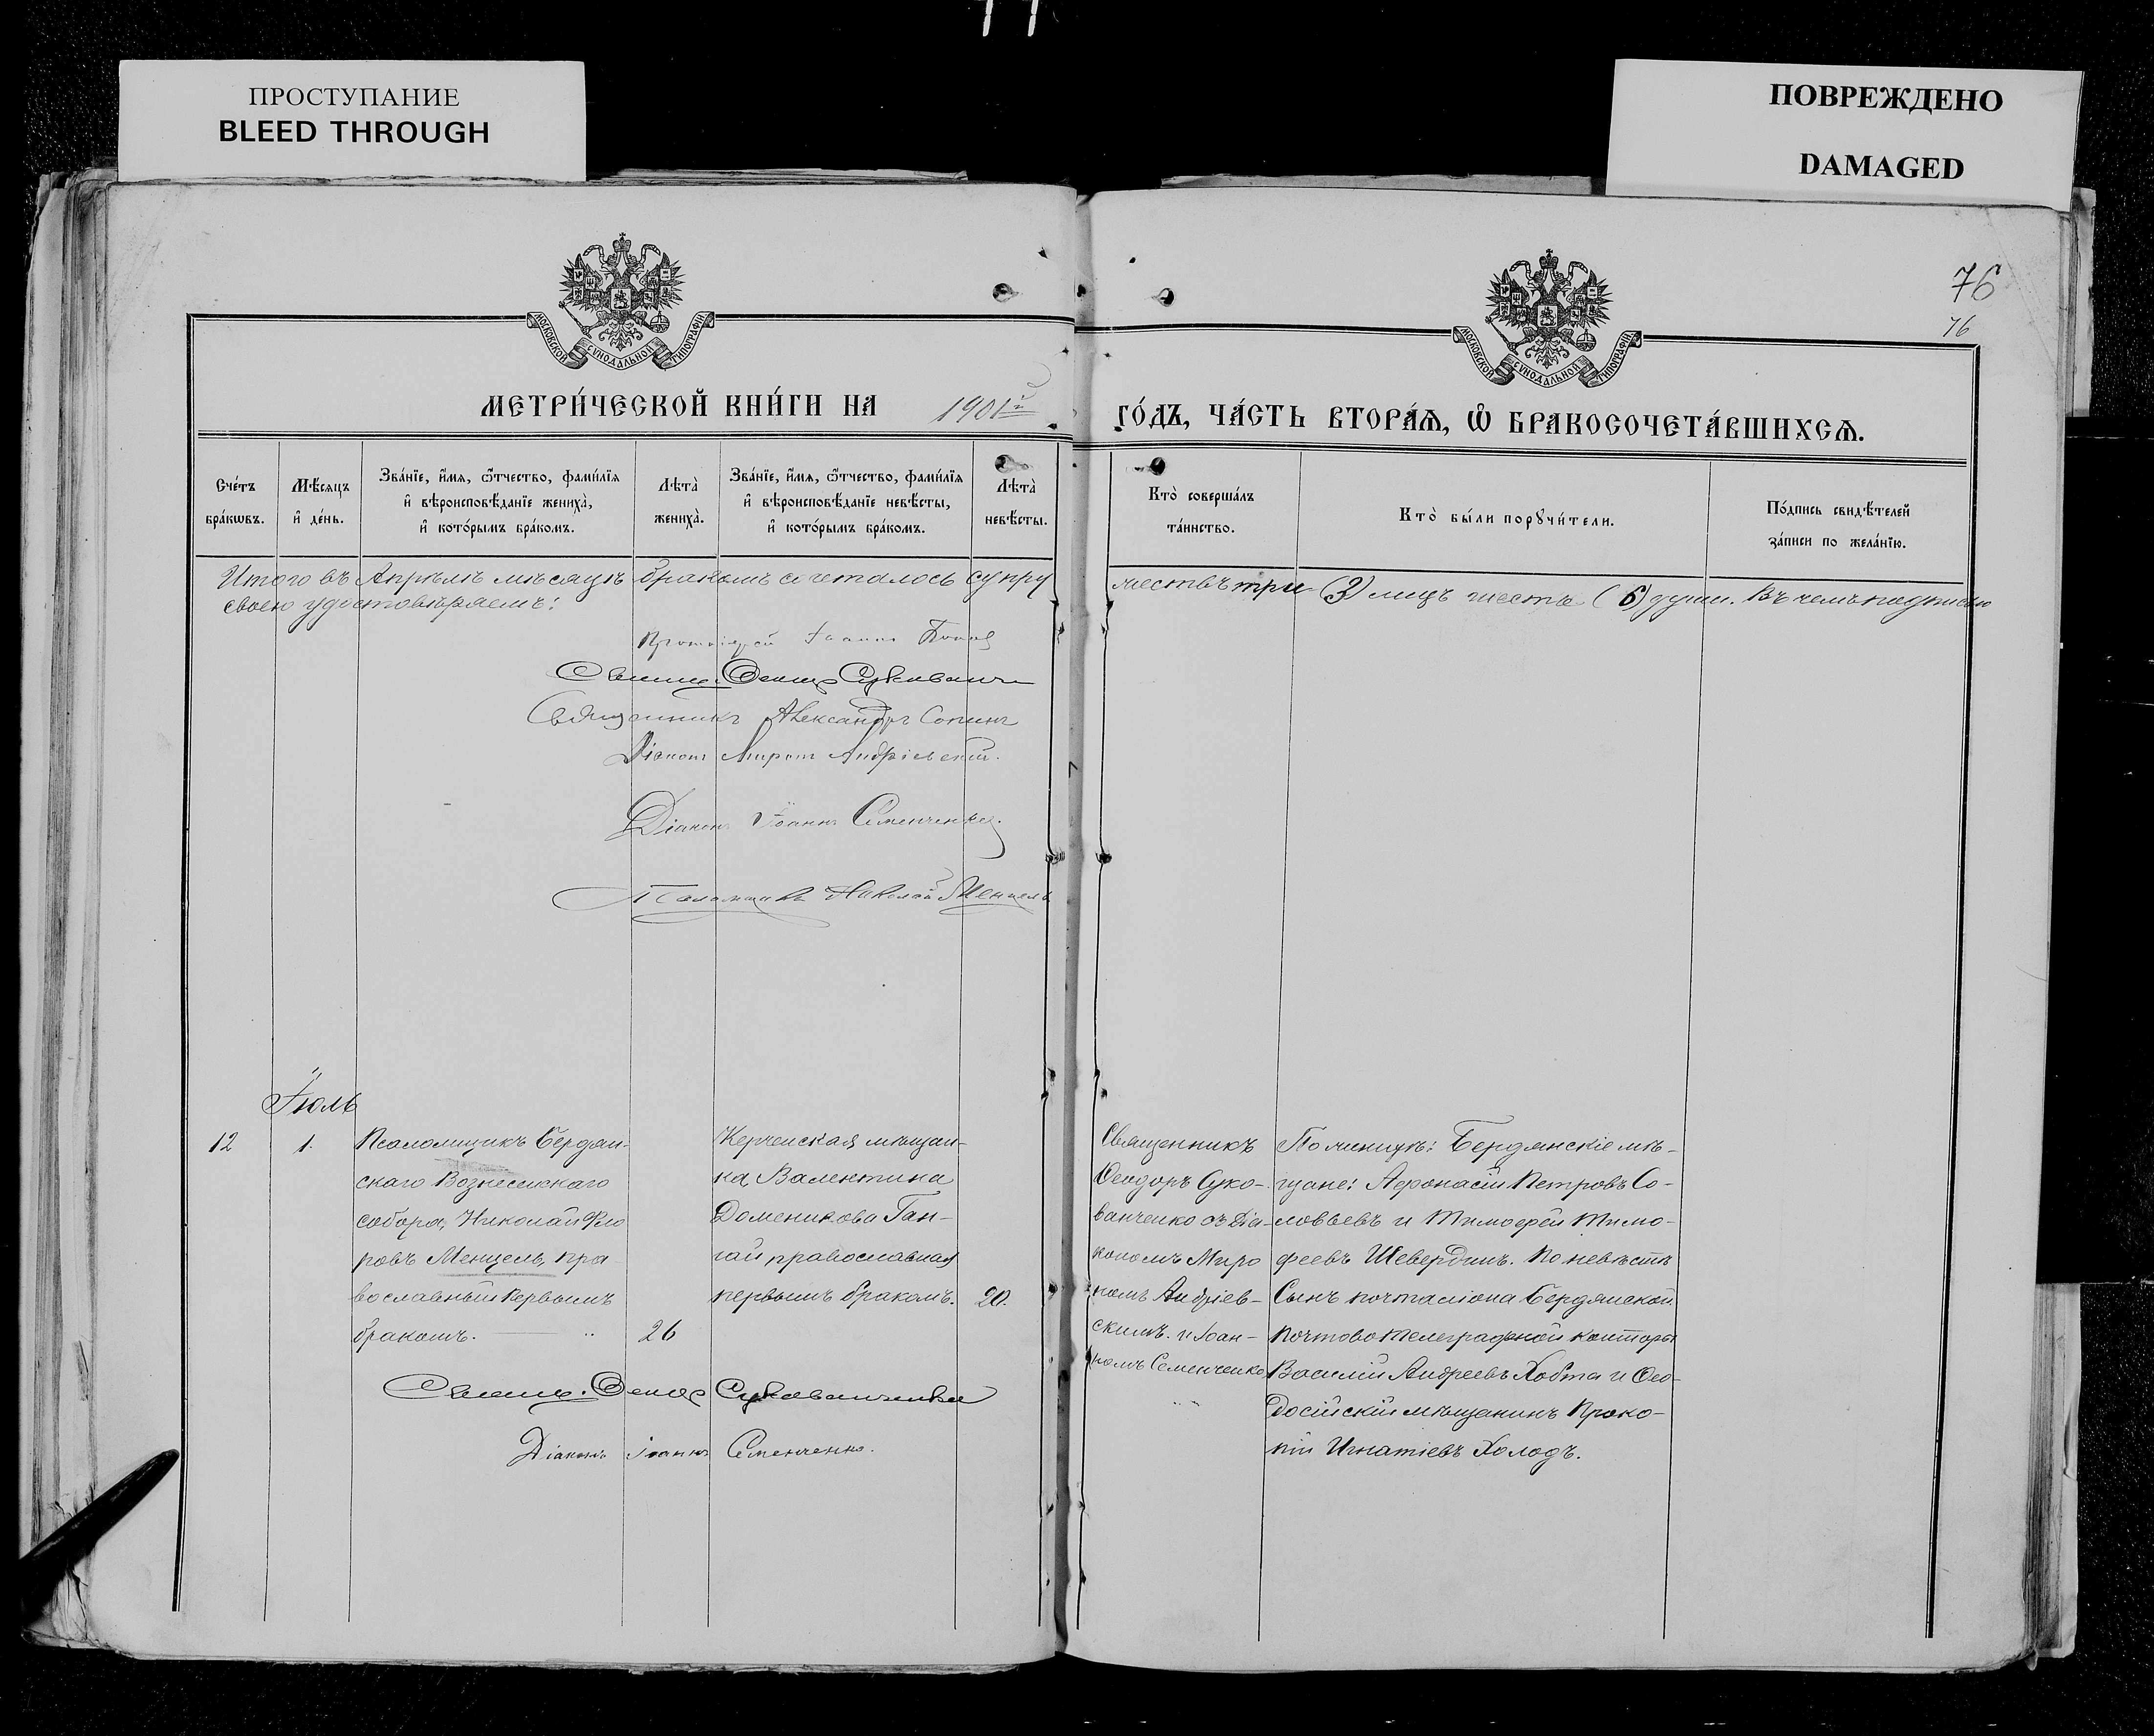 ПРОСТУПАНИЕ
BLEED THROUGH
ПОВРЕЖДЕНО
DAMAGED
76
76
МОСКОВСКОЙ СѴНОДАЛЬНОЙ ТИПОГРАФІИ
МОСКОВСКОЙ СѴНОДАЛЬНОЙ ТИПОГРАФІИ
МЕТРИ́ЧЕСКОЙ КНИ́ГИ НА 1901й
ГО́ДЪ, ЧА́СТЬ ВТОРА́Ѧ, Ѽ БРАКОСОЧЕТА́ВШИХСѦ.
Сче́тъ
бра́кѡвъ.
Мѣ́сяцъ
и҆ де́нь.
Зва́нїе, и҆́мѧ, ѻ҆́тчество, фами́лїѧ
и҆ вѣроисповѣ́данїе жениха̀,
и҆ кото́рымъ бра́комъ.
Лѣта̀
жениха̀.
Зва́нїе, и҆́мѧ, ѻ҆́тчество, фами́лїѧ
и҆ вѣроисповѣ́данїе невѣ́сты,
и҆ кото́рымъ бра́комъ.
Лѣта̀
невѣ́сты.
Кто̀ соверша́лъ
та́инство.
Кто̀ бы́ли порꙋчи́тели.
По́дпись свидѣ́телей
за́писи по жела́нїю.
Итого въ Апрѣлѣ мѣсяцѣ бракомъ сочеталось супру
жествъ три (3) лицъ шесть (6) душъ. Въ чемъ подписью
своею удостовѣряемъ:
Протоіерей Іоаннъ Поповъ
Свящ. Ѳеодоръ Сукованченко
Священникъ Александръ Сопинъ
Діаконъ Миронъ Андріевскій.
Діаконъ Іоаннъ Семенченко.
Псаломщикъ Николай Менцель
Іюль
12
1.
Псаломщикъ Бердян-
скаго Вознесенскаго
собора, Николай Фло
ровъ Менцель, пра
вославный первымъ
бракомъ.
26
Керченская мѣщан-
ка Валентина
Доменикова Ган-
гай православная
первымъ бракомъ.
20.
Священникъ
Ѳеодоръ Суко-
ванченко съ Діа-
кономъ Миро
номъ Андріев-
скимъ. и Іоан-
номъ Семенченко
По женихѣ: Бердянскіе мѣ-
щане: Афонасій Петровъ Со-
ловьевъ и Тимофей Тимо-
феевъ Шевердинъ. По невѣстѣ
Сынъ почталіона Бердянской
почтово Телеграфной конторы
Василій Андреевъ Хобта и Ѳео-
досійскій мѣщанинъ Проко-
пій Игнатіевъ Холодъ.
Свящ. Ѳеодоръ Сукованченко
Діаконъ Іоаннъ Семенченко.